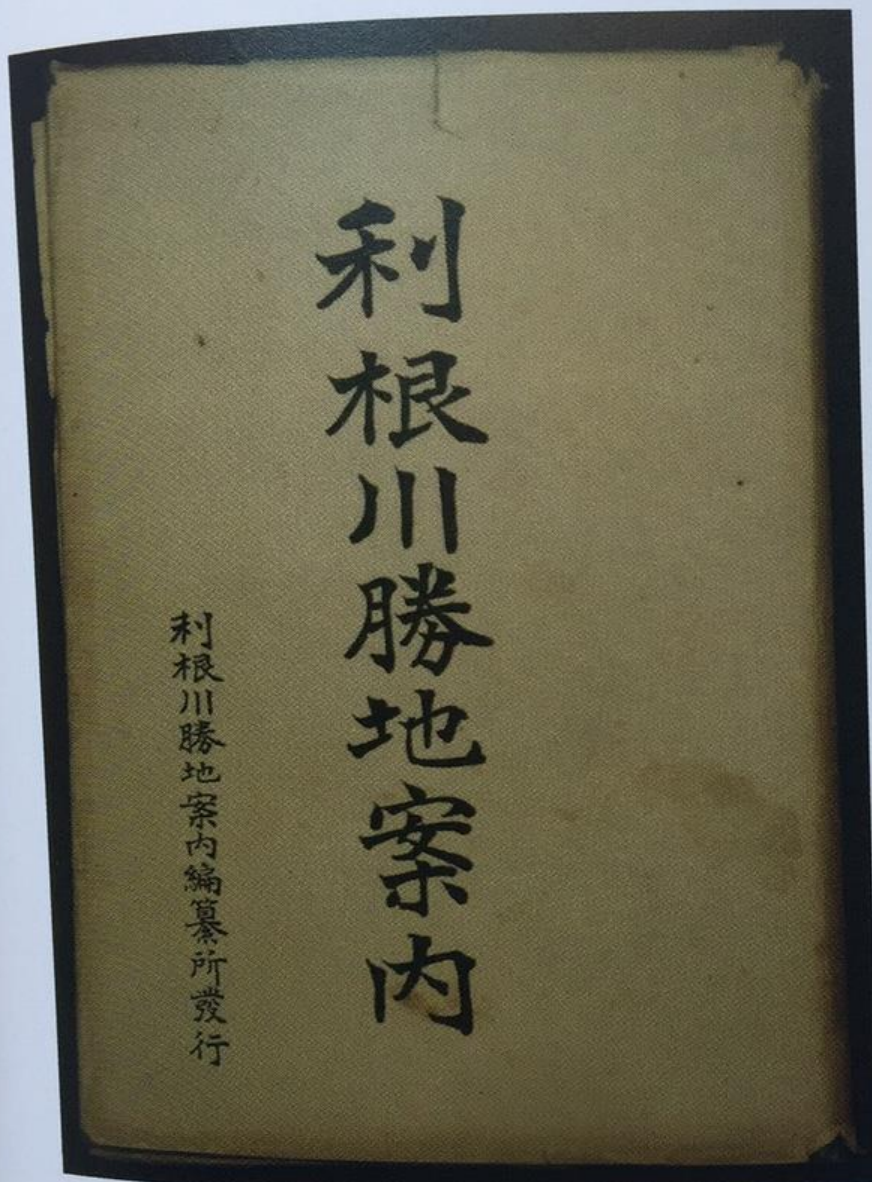 利根川勝地案内
利根川勝地案内編纂所發行